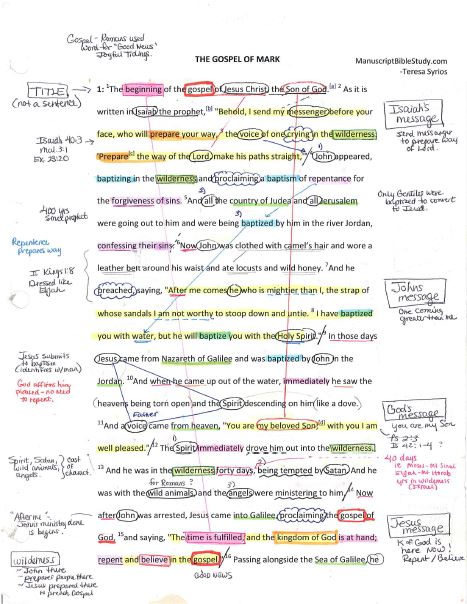 Gospel - Romans used
word for "Good News"
Joyful Tidings.
THE GOSPEL OF MARK
ManuscriptBibleStudy.com
-Teresa Syrios
TITLE
(not a sentence)
1: ¹The beginning of the gospel of Jesus Christ, the Son of God.[a] ² As it is
written in Isaiah the prophet,[b] "Behold, I send my messenger before your
face, who will prepare your way, ³ the voice of one crying in the wilderness:
'Prepare[c] the way of the Lord, make his paths straight,'" ⁴ John appeared,
baptizing in the wilderness and proclaiming a baptism of repentance for
the forgiveness of sins. ⁵ And all the country of Judea and all Jerusalem
were going out to him and were being baptized by him in the river Jordan,
confessing their sins. ⁶ Now John was clothed with camel's hair and wore a
leather belt around his waist and ate locusts and wild honey. ⁷ And he
preached, saying, "After me comes he who is mightier than I, the strap of
whose sandals I am not worthy to stoop down and untie. ⁸ I have baptized
you with water, but he will baptize you with the Holy Spirit." ⁹ In those days
Jesus came from Nazareth of Galilee and was baptized by John in the
Jordan. ¹⁰ And when he came up out of the water, immediately he saw the
heavens being torn open and the Spirit descending on him like a dove.
Father
¹¹ And a voice came from heaven, "You are my beloved Son; with you I am
well pleased." ¹² The Spirit immediately drove him out into the wilderness.
¹³ And he was in the wilderness forty days, being tempted by Satan. And he
for Romans?
was with the wild animals, and the angels were ministering to him. ¹⁴ Now
after John was arrested, Jesus came into Galilee, proclaiming the gospel of
God, ¹⁵ and saying, "The time is fulfilled, and the kingdom of God is at hand;
repent and believe in the gospel." ¹⁶ Passing alongside the Sea of Galilee, he
GOOD NEWS
Isaiah 40:3
Mal 3:1
Ex 23:20
400 yrs
since prophet
Repentence
prepares way
II Kings 1:8
Dressed like
Elijah
Jesus submits
to baptism
(identifies w/man)
God affirms him,
pleased - no need
to repent.
Spirit, Satan,
wild animals,
angels.
cast
of
charact.
"After" me
John's ministry done
is begins.
Wilderness
- John there
- prepares people there
- Jesus prepared there
to preach Gospel
Isaiah's
message
send messenger
to prepare way
of Lord.
Only Gentiles were
baptized to convert
to Jews.
John's
message
One coming
greater than me
God's
message
you are my Son
Ps 2:7
Is 42:1-4 ?
40 days
ie Moses - Mt Sinai
Elijah - Mt Horeb
yrs in wilderness
(Israel)
Jesus
message
K of God is
here Now!
Repent / Believe